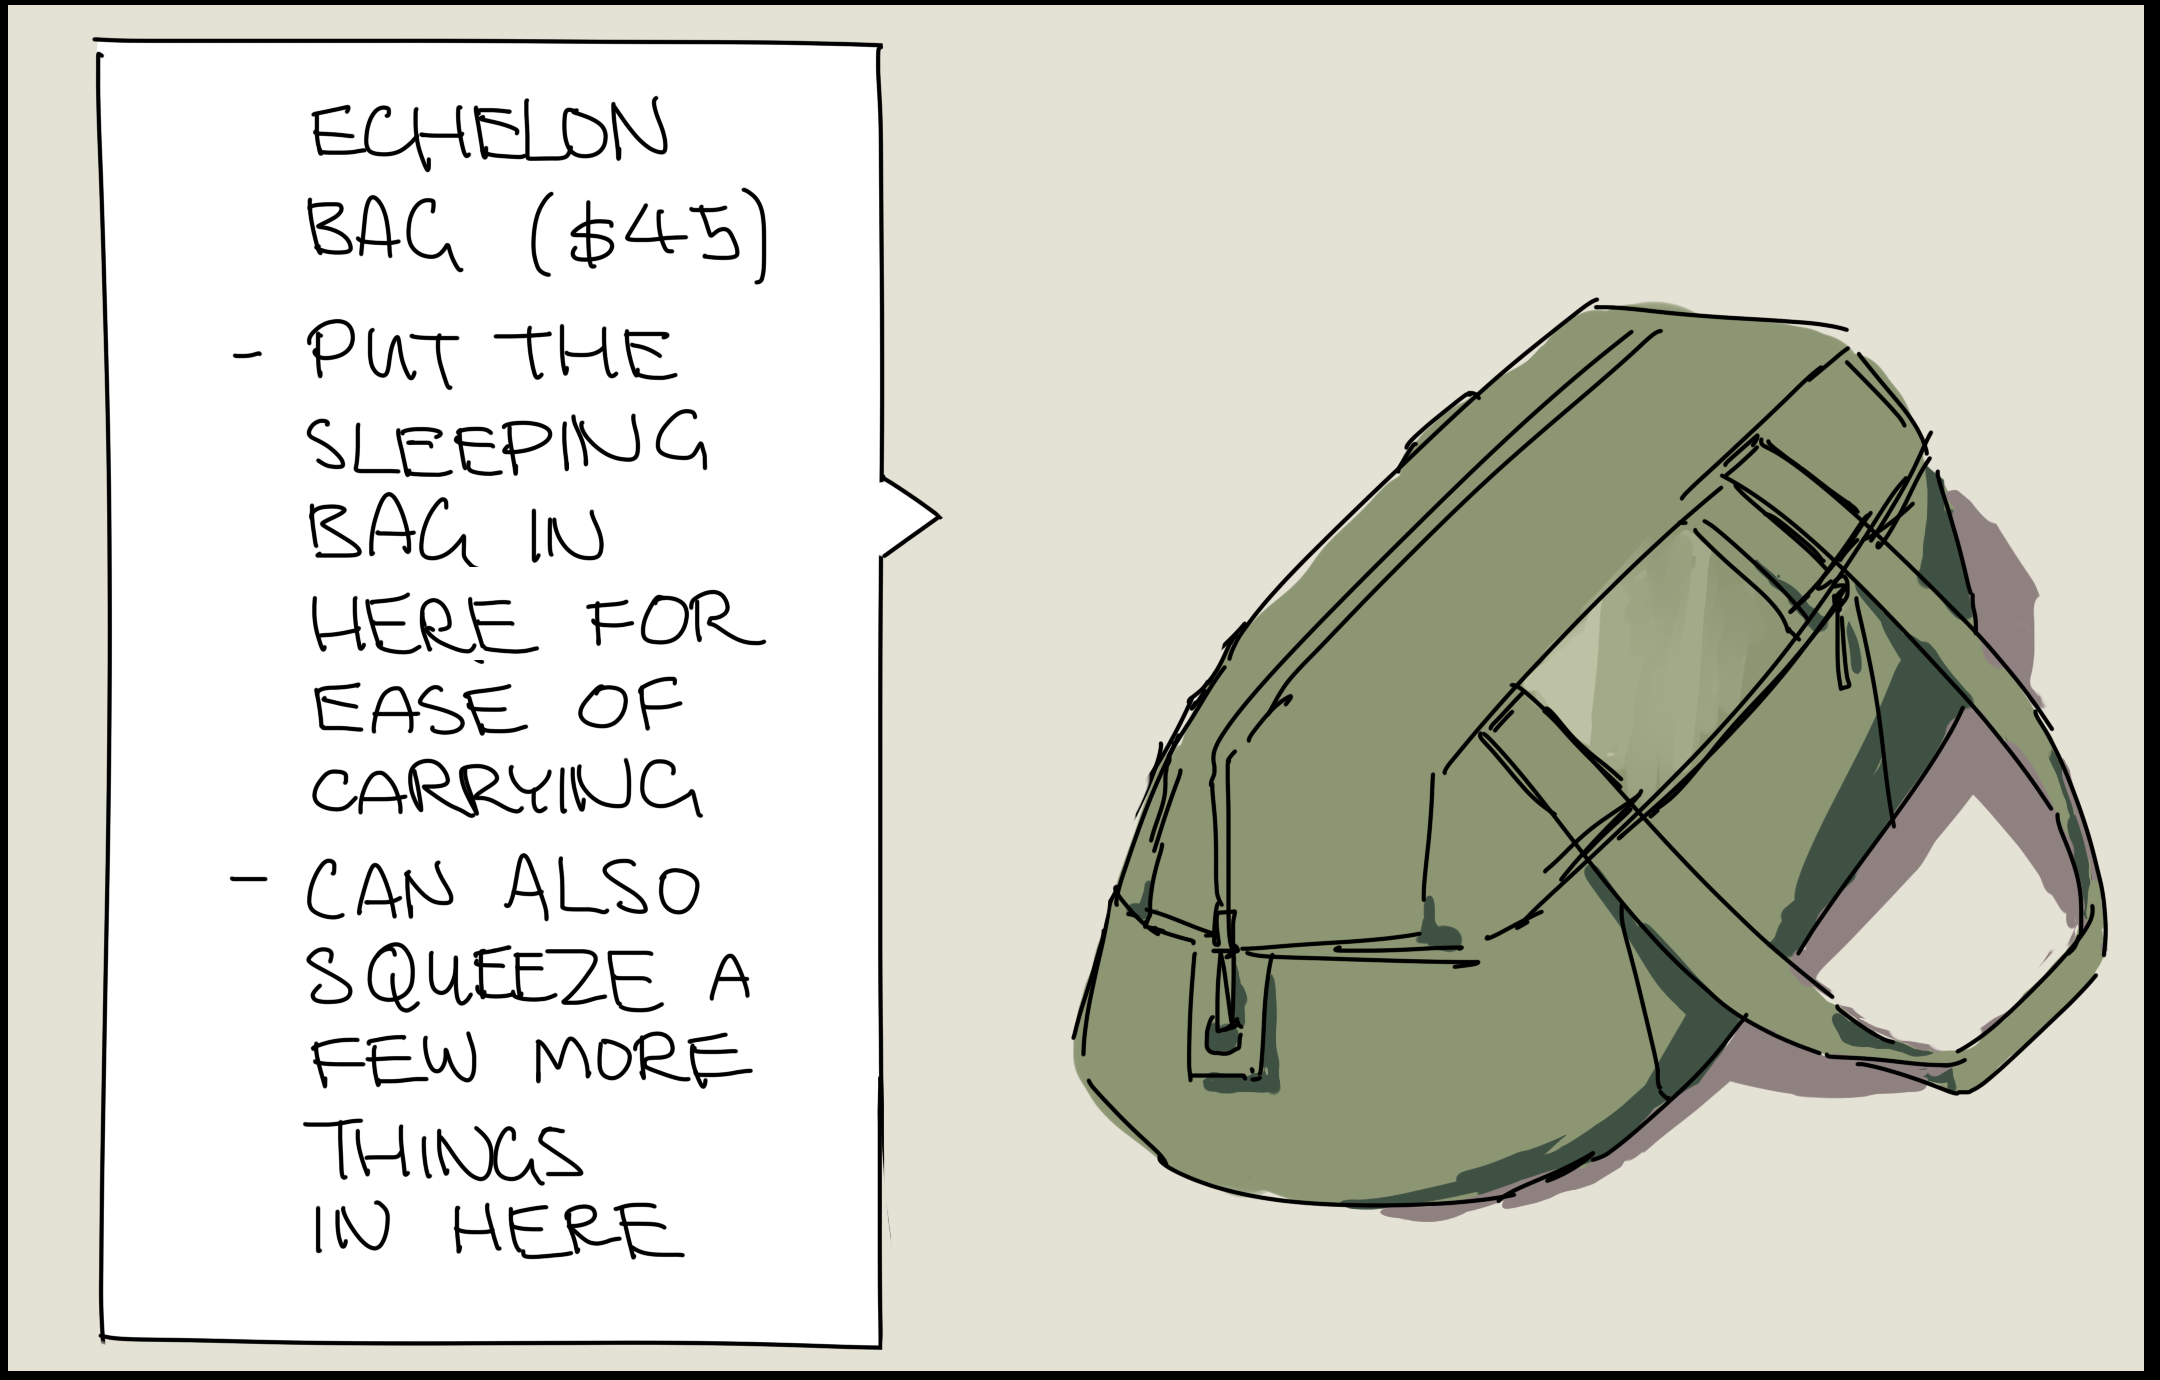 ECHELON
BAG ($45)
- PUT THE
SLEEPING
BAG IN
HERE FOR
EASE OF
CARRYING
- CAN ALSO
SQUEEZE A
FEW MORE
THINGS
IN HERE